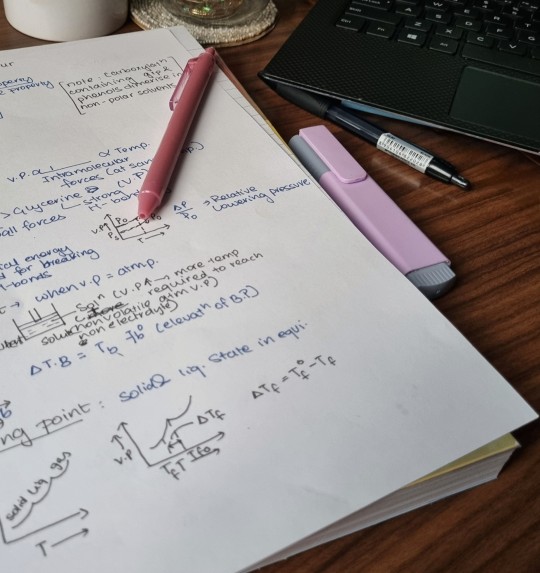 ur
property
[note: carboxylain
containing grp &
phenols dimerise in
non-polar solvents
v.p. α 1 α Temp.
Intramolecular
forces (at sam p)
> Glycerine (V.P
strong
H-bond
all forces
V.P↑ P₀ T→ ΔP/P₀ → Relative
lowering pressure
ical energy
d for breaking
H-bonds
→ when v.p = atmp.
Solⁿ (V.P↑ → more temp
required to reach
atm v.p)
non volatile
non electrolyte)
ΔT.B = Tb - Tb° (elevatⁿ of B.P)
ing point : Solid & liq. State in equi.
V.P ΔTf
Tf T
ΔTf = Tf° - Tf
solid liq gas
T →